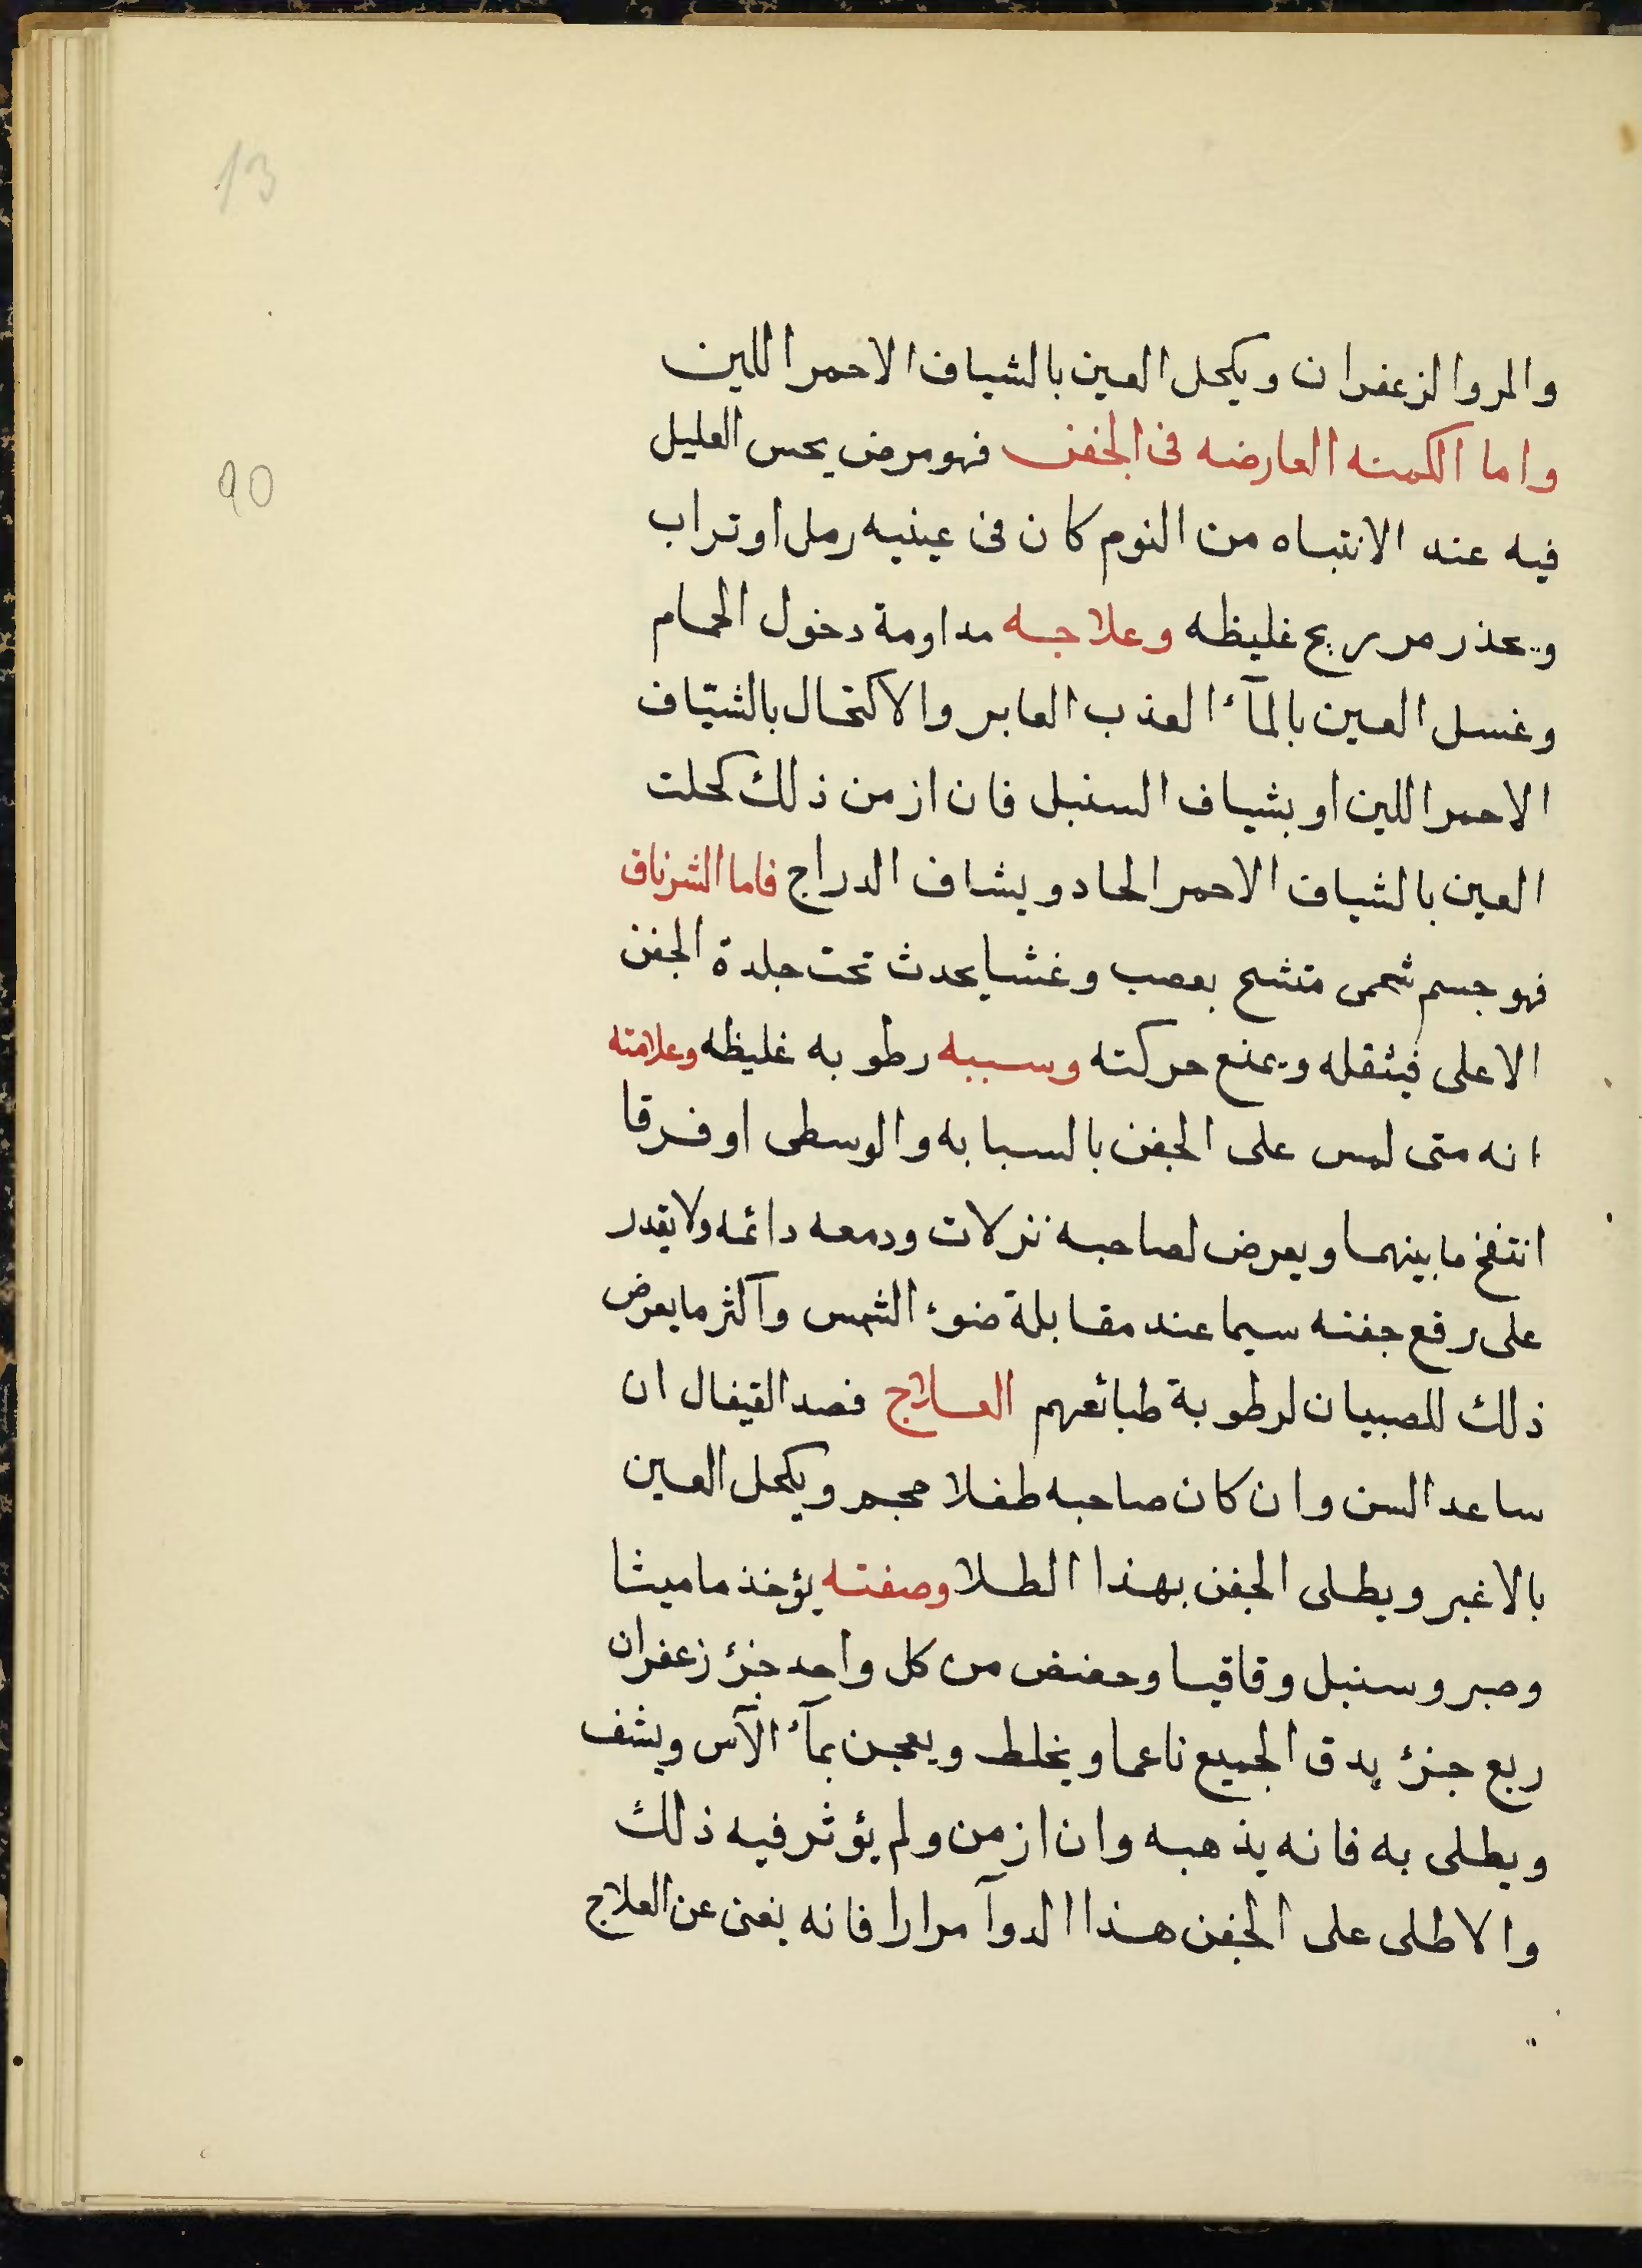 13
90
والمر والزعفران ويكحل العين بالشياف الاحمر اللين
واما الكمنه العارضه فى الجفن فهو مرض يحس العليل
فيه عند الانتباه من النوم كان فى عينيه رمل او تراب
ويحذر من ريح غليظه وعلاجه مداومة دخول الحمام
وغسل العين بالمآء العذب العابر والاكتحال بالشيّاف
الاحمر اللين او بشياف السنبل فان ازمن ذلك كحلت
العين بالشياف الاحمر الحاد وبشاف الدراج فاما الشرناق
فهو جسم شحمى متشح بعصب وغشا يحدث تحت جلدة الجفن
الاعلى فيثقله ويمنع حركته وسببه رطوبه غليظه وعلامته
انه متى لمس على الجفن بالسبابه والوسطى او فرقا
انتفخ ما بينهما ويعرض لصاحبه نزلات ودمعه دائمه ولا يقدر
على رفع جفنه سيما عند مقابلة ضوء الشمس وآكثر ما يعرض
ذلك للصبيان لرطوبة طبائعهم العلاج فصد القيفال ان
ساعد السن وان كان صاحبه طفلا محجم ويكحل العين
بالاغبر ويطلى الجفن بهذا الطلا وصفته يؤخذ ماميثا
وصبر وسنبل وقاقيا وحضض من كل واحد جزء زعفران
ربع جزء يدق الجميع ناعما ويخلط ويعجن بمآء الآس ويشف
ويطلى به فانه يذهبه وان ازمن ولم يؤثر فيه ذلك
والاطلى على الجفن هذا الدوآ مرارا فانه يغنى عن العلاج